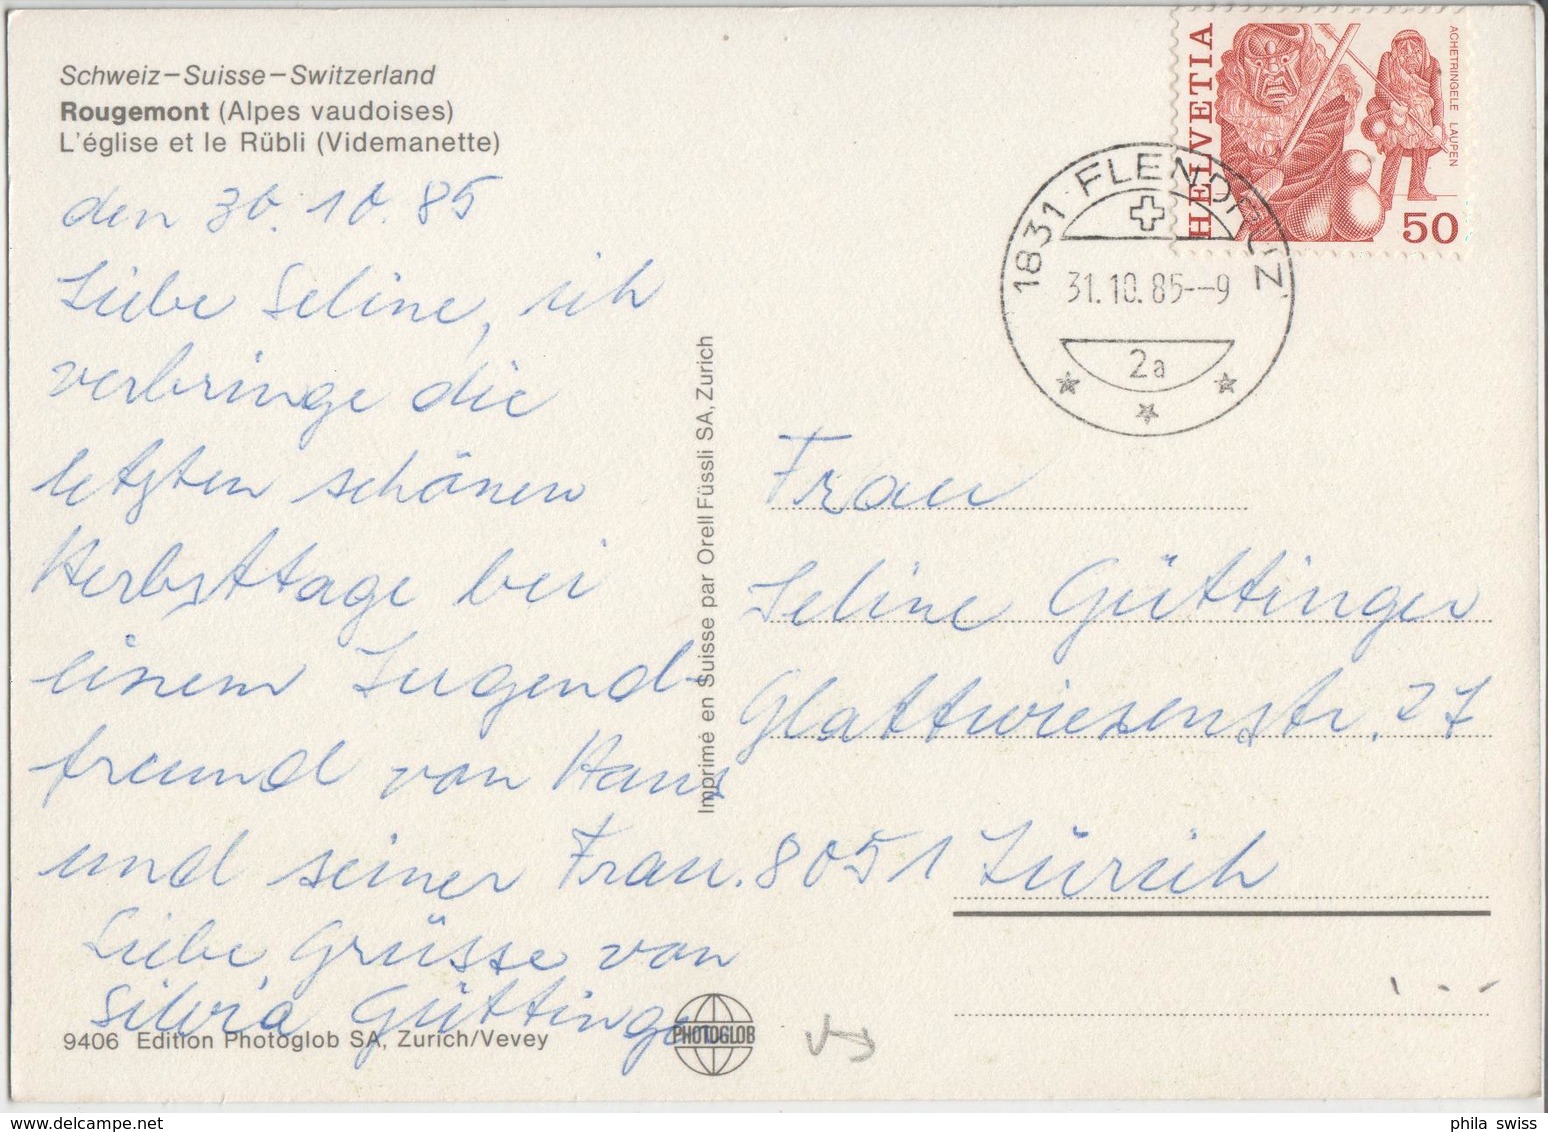 Schweiz–Suisse–Switzerland
Rougemont (Alpes vaudoises)
L'église et le Rübli (Videmanette)
den 30.10.85
Liebe Seline, ich
verbringe die
letzten schönen
Herbsttage bei
einem Jugend-
freund von Hans
und seiner Frau.
Liebe Grüsse von
Silvia Güttinger
9406 Edition Photoglob SA, Zurich/Vevey
PHOTOGLOB
Imprimé en Suisse par Orell Füssli SA, Zurich
HELVETIA
ACHETRINGELE LAUPEN
50
1831 FLENDRUZ
31.10.85--9
2a
Frau
Seline Güttinger
Glattwiesenstr. 27
8051 Zürich
phila swiss